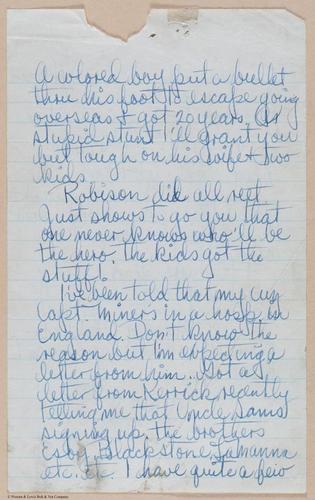 A colored boy put a bullet
thru his foot to escape going
overseas & got 20 years. A
stupid stunt I'll grant you
but tough on his wife & two
kids.
Robison did all reet
Just shows to go you that
one never knows who'll be
the hero. The kids got the
stuff!
I've been told that my cuz
Capt. Miners in a hosp. in
England. Don't know the
reason but I'm expecting a
letter from him. Got a
letter from Kerrick recently
telling me that Uncle Sams
signing up the brothers
Esby, Blackstone, Lamanna
etc. etc. I have quite a few